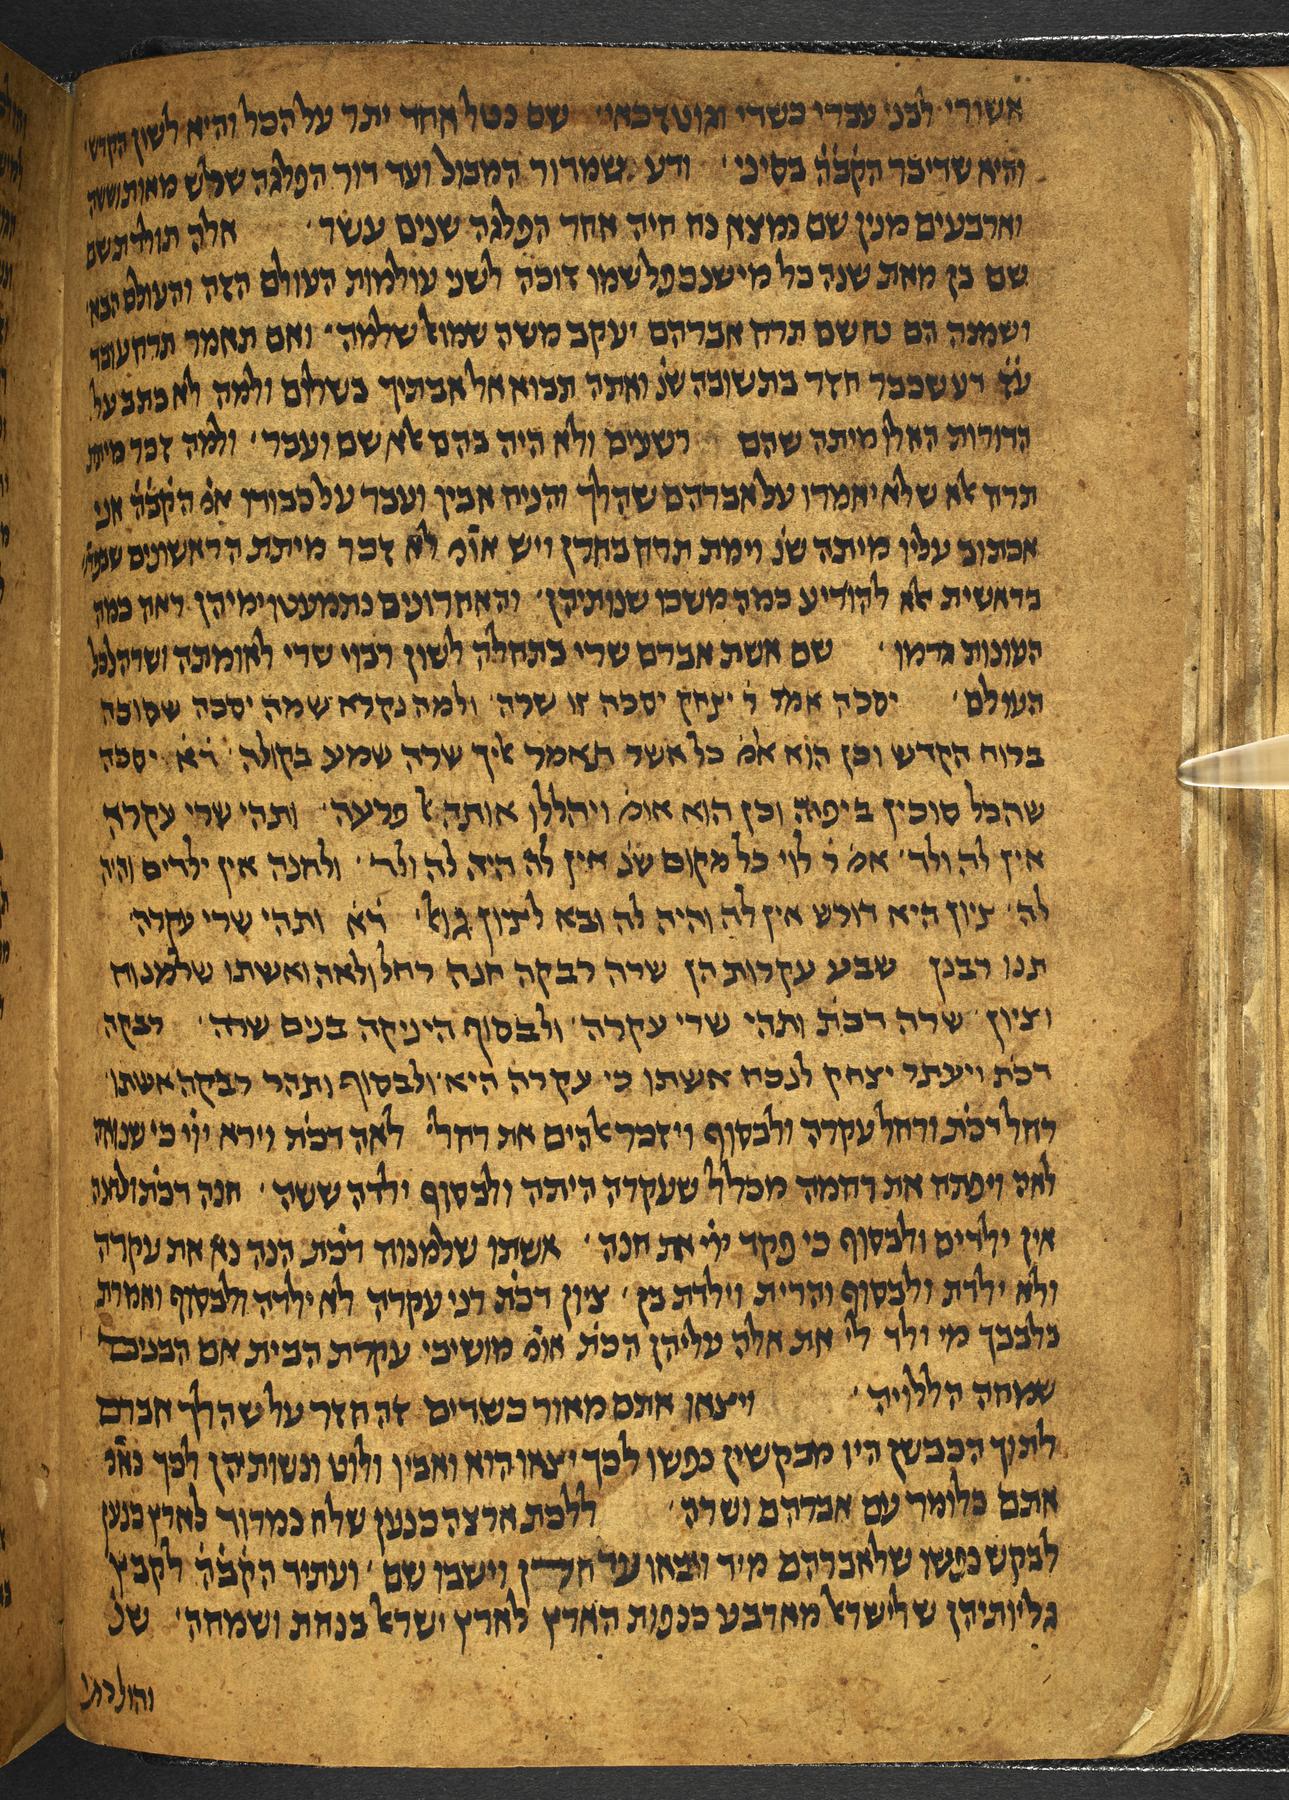 אשורי לבני עברי כשדי ונוטרכאי׳ שם נטל אחד יתר על הכל והיא לשון הקדש׳
והיא שדיבר הקבה בסיני׳ ודע שמדור המבול ועד דור הפלגה שלש מאות וששה
וארבעים מנין שם נמצא נח חיה אחר הפלגה שנים עשר׳ אלה תולדת שם
שם בן מאת שנה כל מי שנכפל שמו זוכה לשני עולמות העולם הזה והעולם הבא׳
ושמנה הם נח שם תרח אברהם יעקב משה שמואל שלמה׳ ואם תאמר תרח עובד
עז דע שכבר חזר בתשובה שנ ואתה תבוא אל אבתיך בשלום ולמה לא כתב על
הדורות האלו מיתה שהם רשעים ולא היה בהם אלא שם ועבר׳ ולמה זכר מיתת
תרח אלא שלא יאמרו על אברהם שהלך והניח אביו ועבר על כבודו אמ הקבה אני
אכתוב עליו מיתה שנ וימת תרח בחרן ויש אומ לא זכר מיתת הראשונים
בראשית אלא להודיע כמה משכו שנותיהן׳ והאחרונים נתמעטו ימיהן ראה כמה
העונות גרמו׳ שם אשת אברם שרי בתחלה לשון רבוי שרי לאומתה ושרה לכל
העולם׳ יסכה אמר ר יצחק יסכה זו שרה׳ ולמה נקרא שמה יסכה שסוכה
ברוח הקדש וכן הוא אמ כל אשר תאמר אליך שרה שמע בקולה׳ דא יסכה
שהכל סוכין ביפיה וכן הוא אומ ויהללו אותה אל פרעה׳ ותהי שרי עקרה
אין לה ולד׳ אמ ר לוי כל מקום שנ אין לה היה לה ולד׳ ולחנה אין ילדים והיה
לה׳ ציון היא דורש אין לה והיה לה ובא לציון גואל׳ דא ותהי שרי עקרה
תנו רבנן שבע עקרות הן שרה רבקה חנה רחל ולאה ואשתו שלמנוח
וציון׳ שרה דכת ותהי שרי עקרה׳ ולבסוף היניקה בנים שרה׳ רבקה
דכת ויעתר יצחק לנכח אשתו כי עקרה היא׳ ולבסוף ותהר רבקה אשתו׳
רחל דכת ורחל עקרה ולבסוף ויזכר אלהים את רחל׳ לאה דכת וירא ייי כי שנואה
לאה ויפתח את רחמה מכלל שעקרה היתה ולבסוף ילדה ששה׳ חנה דכת ולחנה
אין ילדים ולבסוף כי פקד ייי את חנה׳ אשתו שלמנוח דכת הנה נא את עקרה
ולא ילדת ולבסוף והרית וילדת בן׳ ציון דכת רני עקרה לא ילדה ולבסוף ואמרת
בלבבך מי ילד לי את אלה עליהן הכת אומ מושיבי עקרת הבית אם הבנים
שמחה הללויה׳ ויצאו אתם מאור כשדים זה חזר על שהלך אברם
לתוך הכבשן היו מבקשין נפשו לכך יצאו הוא ואביו ולוט ונשותיהן לכך נאמ
אתם כלומר עם אברהם ושרה׳ ללכת ארצה כנען שלח נמרוד לארץ כנען
לבקש נפשו שלאברהם מיד ויבאו עד חרן וישבו שם׳ ועתיד הקבה לקבץ
גליותיהן שלישראל מארבע כנפות הארץ לארץ ישראל בנחת ושמחה׳ שנ